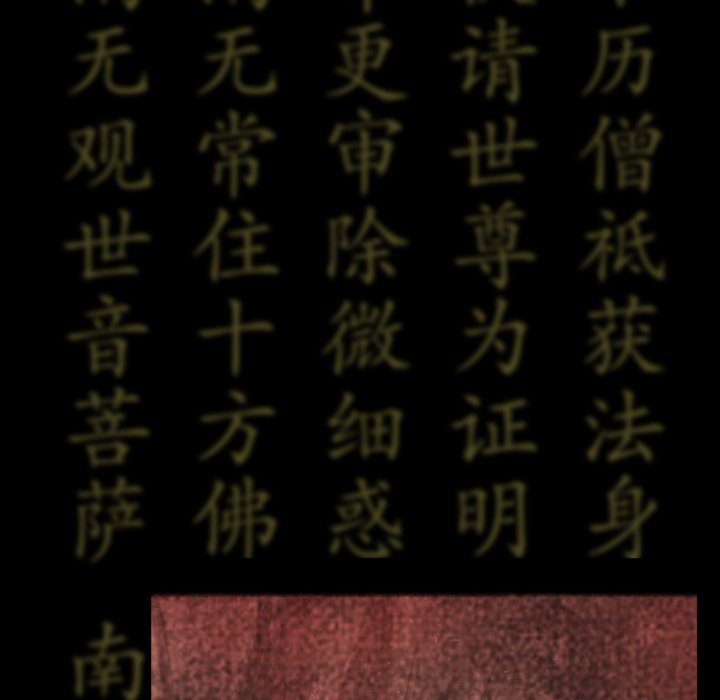 历僧祗获法身
请世尊为证明
更审除微细惑
无常住十方佛
无观世音菩萨
南